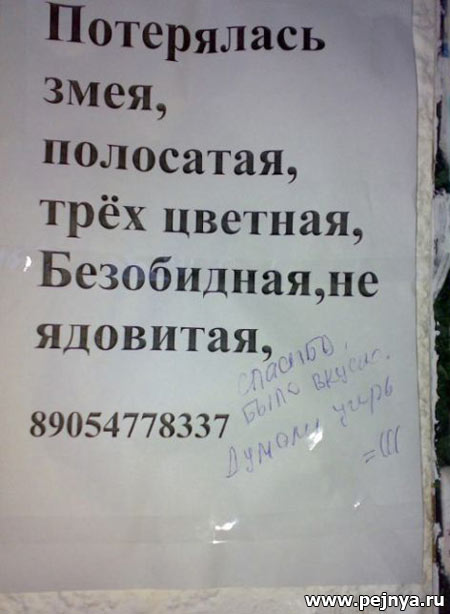 Потерялась
змея,
полосатая,
трёх цветная,
Безобидная,не
ядовитая,
спасибо,
было вкусно.
Думали угорь
=(((
89054778337
www.pejnya.ru